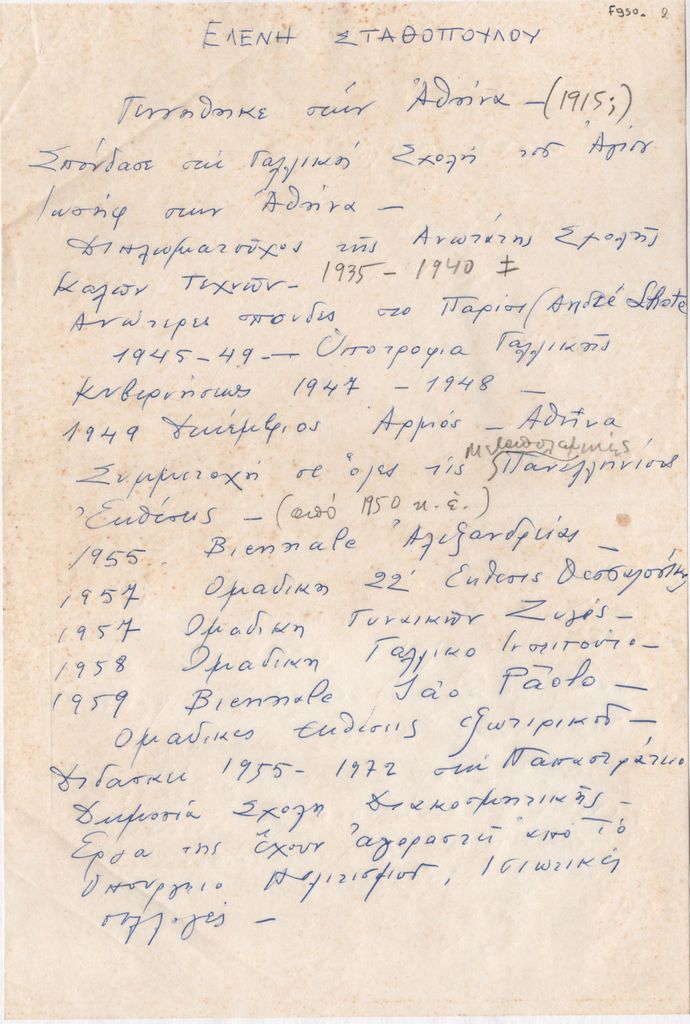 F950. 2
ΕΛΕΝΗ ΣΤΑΘΟΠΟΥΛΟΥ
Γεννήθηκε στήν Ἀθήνα – (1915;)
Σπούδασε στή Γαλλική Σχολή τοῦ Ἁγίου
Ιωσήφ στην Ἀθήνα –
Διπλωματοῦχος τῆς Ανωτάτης Σχολῆς
Καλών Τεχνών – 1935 – 1940
Ανώτερες σπουδες στο Παρίσι (André Lhote
1945 – 49 – Υποτροφια Γαλλικῆς
Κυβερνήσεως 1947 – 1948 –
1949 Δεκέμβριος Αρμός – Αθήνα
Συμμετοχή σε ὅλες τίς Πανελληνίους
Ἐκθέσεις – (από 1950 κ. ἑ.)
1955. Biennale Ἀλεξανδρείας –
1957 Ομαδικη 22 Εκθεσις Θεσσαλονίκης
1957 Ομαδικη Γυναικών Ζυγός –
1958 Ομαδικη Γαλλικο Ινστιτούτο –
1959 Biennale São Pãolo –
Ομαδικες εκθεσεις εξωτερικοῦ –
Διδασκει 1955 – 1972 στή Παπαστράτειο
Δημοσία Σχολη Διακοσμητικῆς –
Εργα της ἔχουν ἀγοραστεῖ ἀπό τό
Υπουργειο Πολιτισμοῦ, Ιδιωτικές
συλλογές –